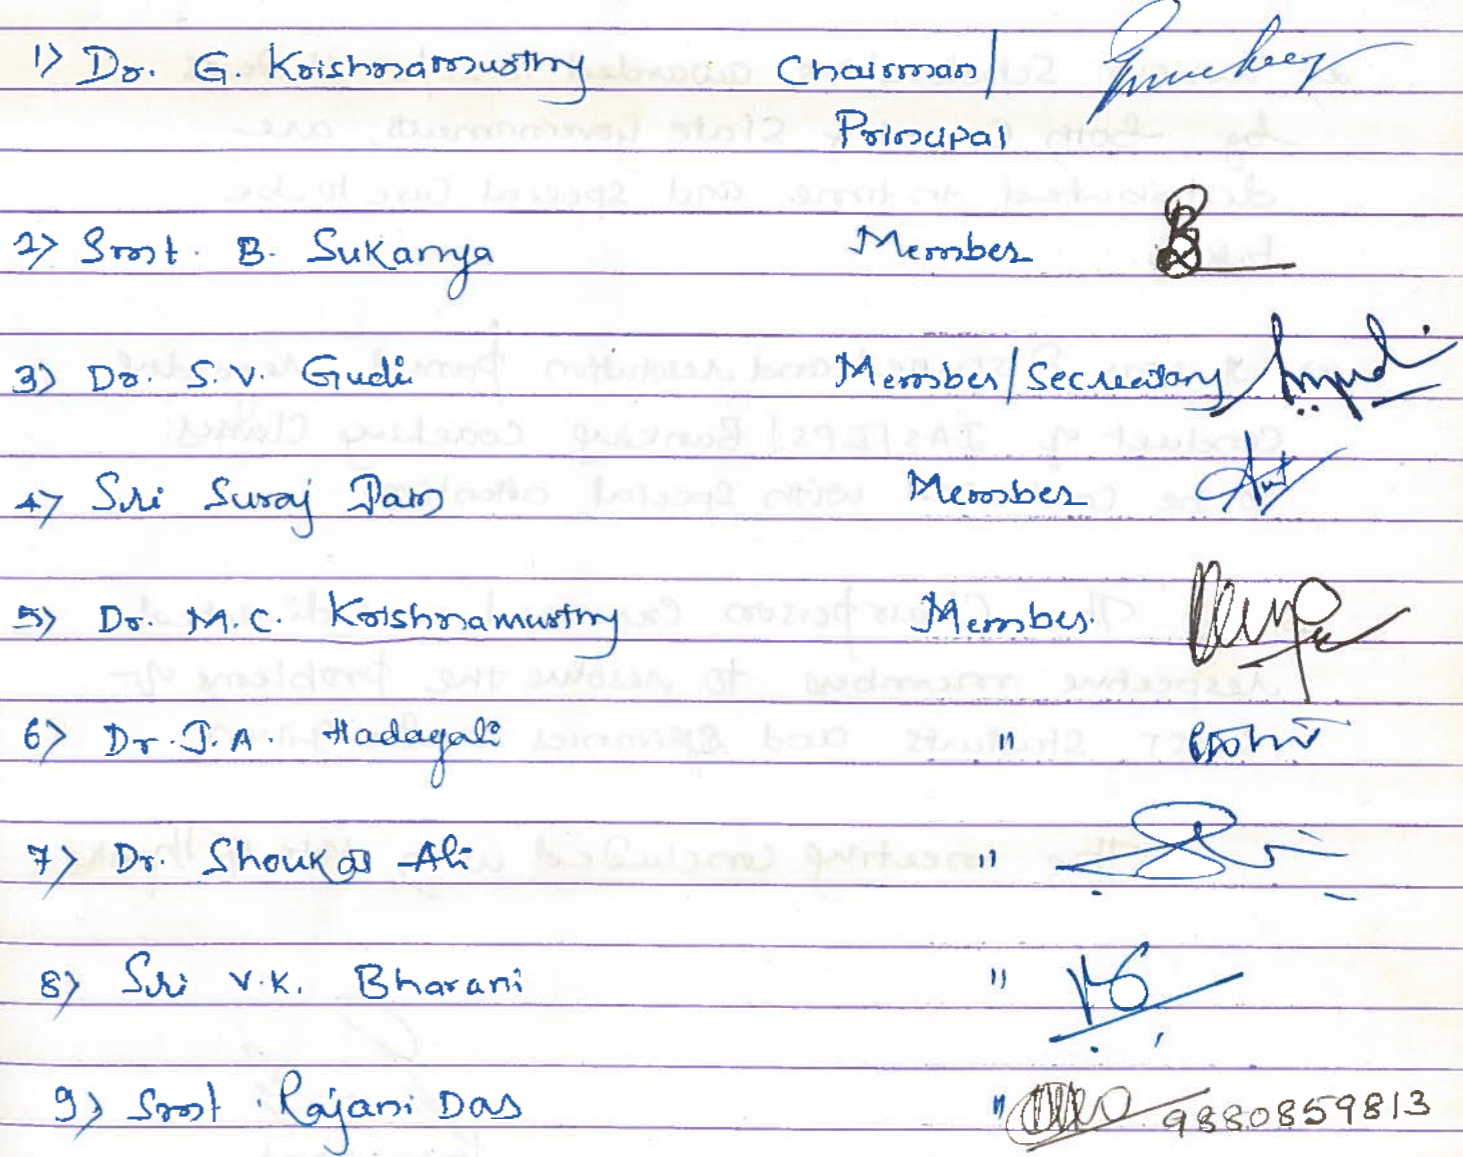 1) Dr. G. Krishnamurthy Chairman/
Principal
2) Smt. B. Sukanya Member
3) Dr. S.V. Gudi Member/Secreatary
4) Sri Suraj Member
5) Dr. M.C. Krishnamurthy Member
6) Dr. J.A. Hadagali "
7) Dr. Shoukat Ali "
8) Sri V.K. Bharani "
9) Smt. Rajani Das " 9880859813